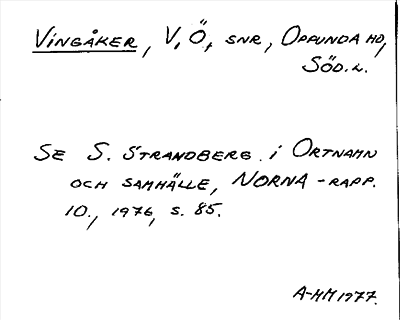 VINGÅKER, V. Ö., SNR, OPPUNDA HD,
SÖD. L.
SE S. STRANDBERG i ORTNAMN
OCH SAMHÄLLE, NORNA-RAPP.
10., 1976, S. 85.
A-MM 1977.